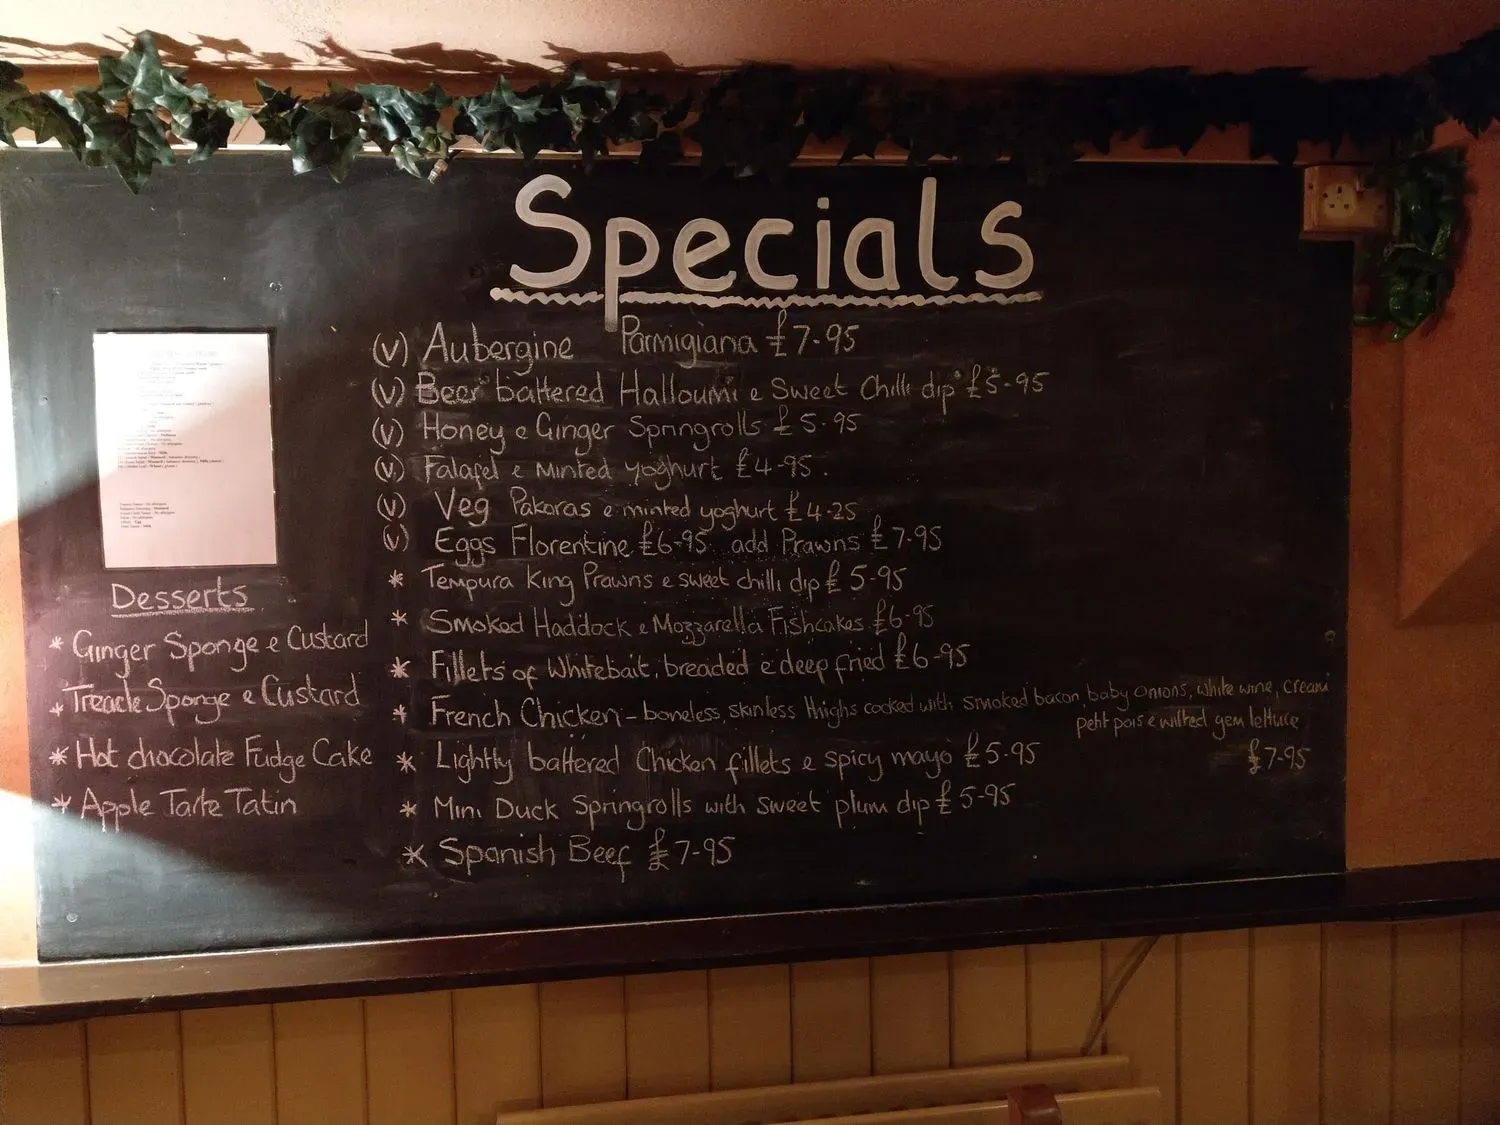 Specials
(v) Aubergine Parmigiana £7-95
(v) Beer battered Halloumi e Sweet Chilli dip £5-95
(v) Honey e Ginger Springrolls £5-95
(v) Falafel e Minted yoghurt £4-95.
(v) Veg Pakoras e minted yoghurt £4-25
(v) Eggs Florentine £6-95 add Prawns £7-95
* Tempura King Prawns e sweet chilli dip £5-95
* Smoked Haddock e Mozzarella Fishcakes £6-95
* Fillets of Whitebait, breaded e deep fried £6-95
* French Chicken - boneless, skinless thighs cooked with smoked bacon, baby onions, white wine, cream
petit pois e wilted gem lettuce
£7-95
* Lightly battered Chicken fillets e spicy mayo £5-95
* Mini Duck Springrolls with sweet plum dip £5-95
* Spanish Beef £7-95
Desserts
* Ginger Sponge e Custard
* Treacle Sponge e Custard
* Hot chocolate Fudge Cake
* Apple Tarte Tatin